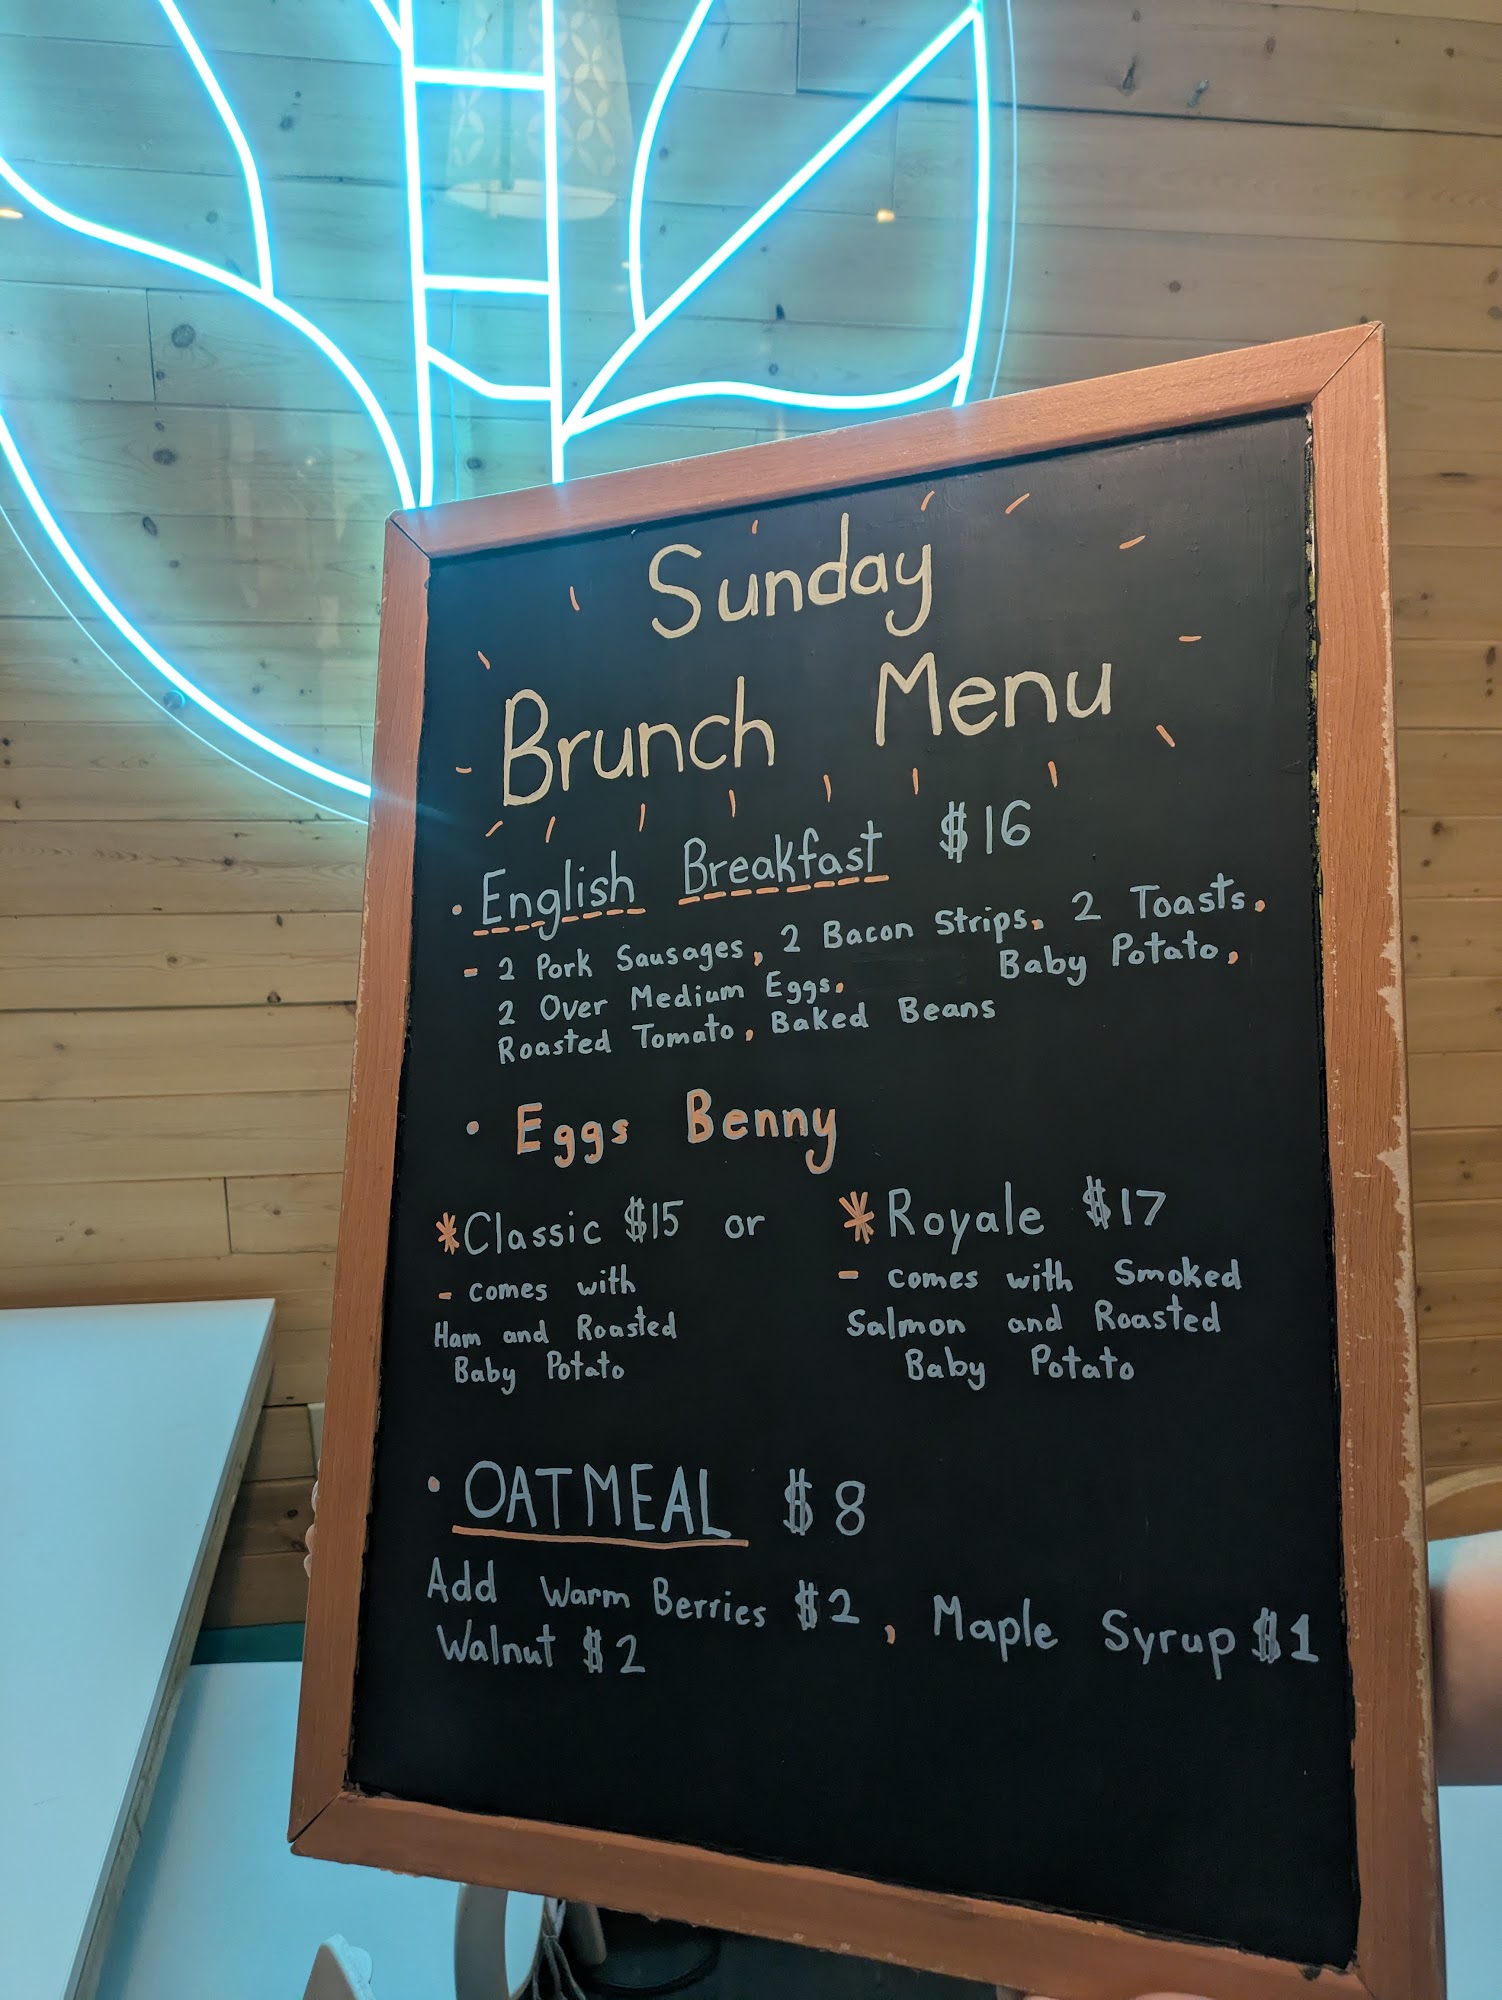 Sunday
Brunch Menu
• English Breakfast $16
- 2 Pork Sausages, 2 Bacon Strips, 2 Toasts,
2 Over Medium Eggs, Baby Potato,
Roasted Tomato, Baked Beans
• Eggs Benny
*Classic $15 or *Royale $17
- comes with
Ham and Roasted
Baby Potato
- comes with Smoked
Salmon and Roasted
Baby Potato
• OATMEAL $8
Add Warm Berries $2, Maple Syrup $1
Walnut $2